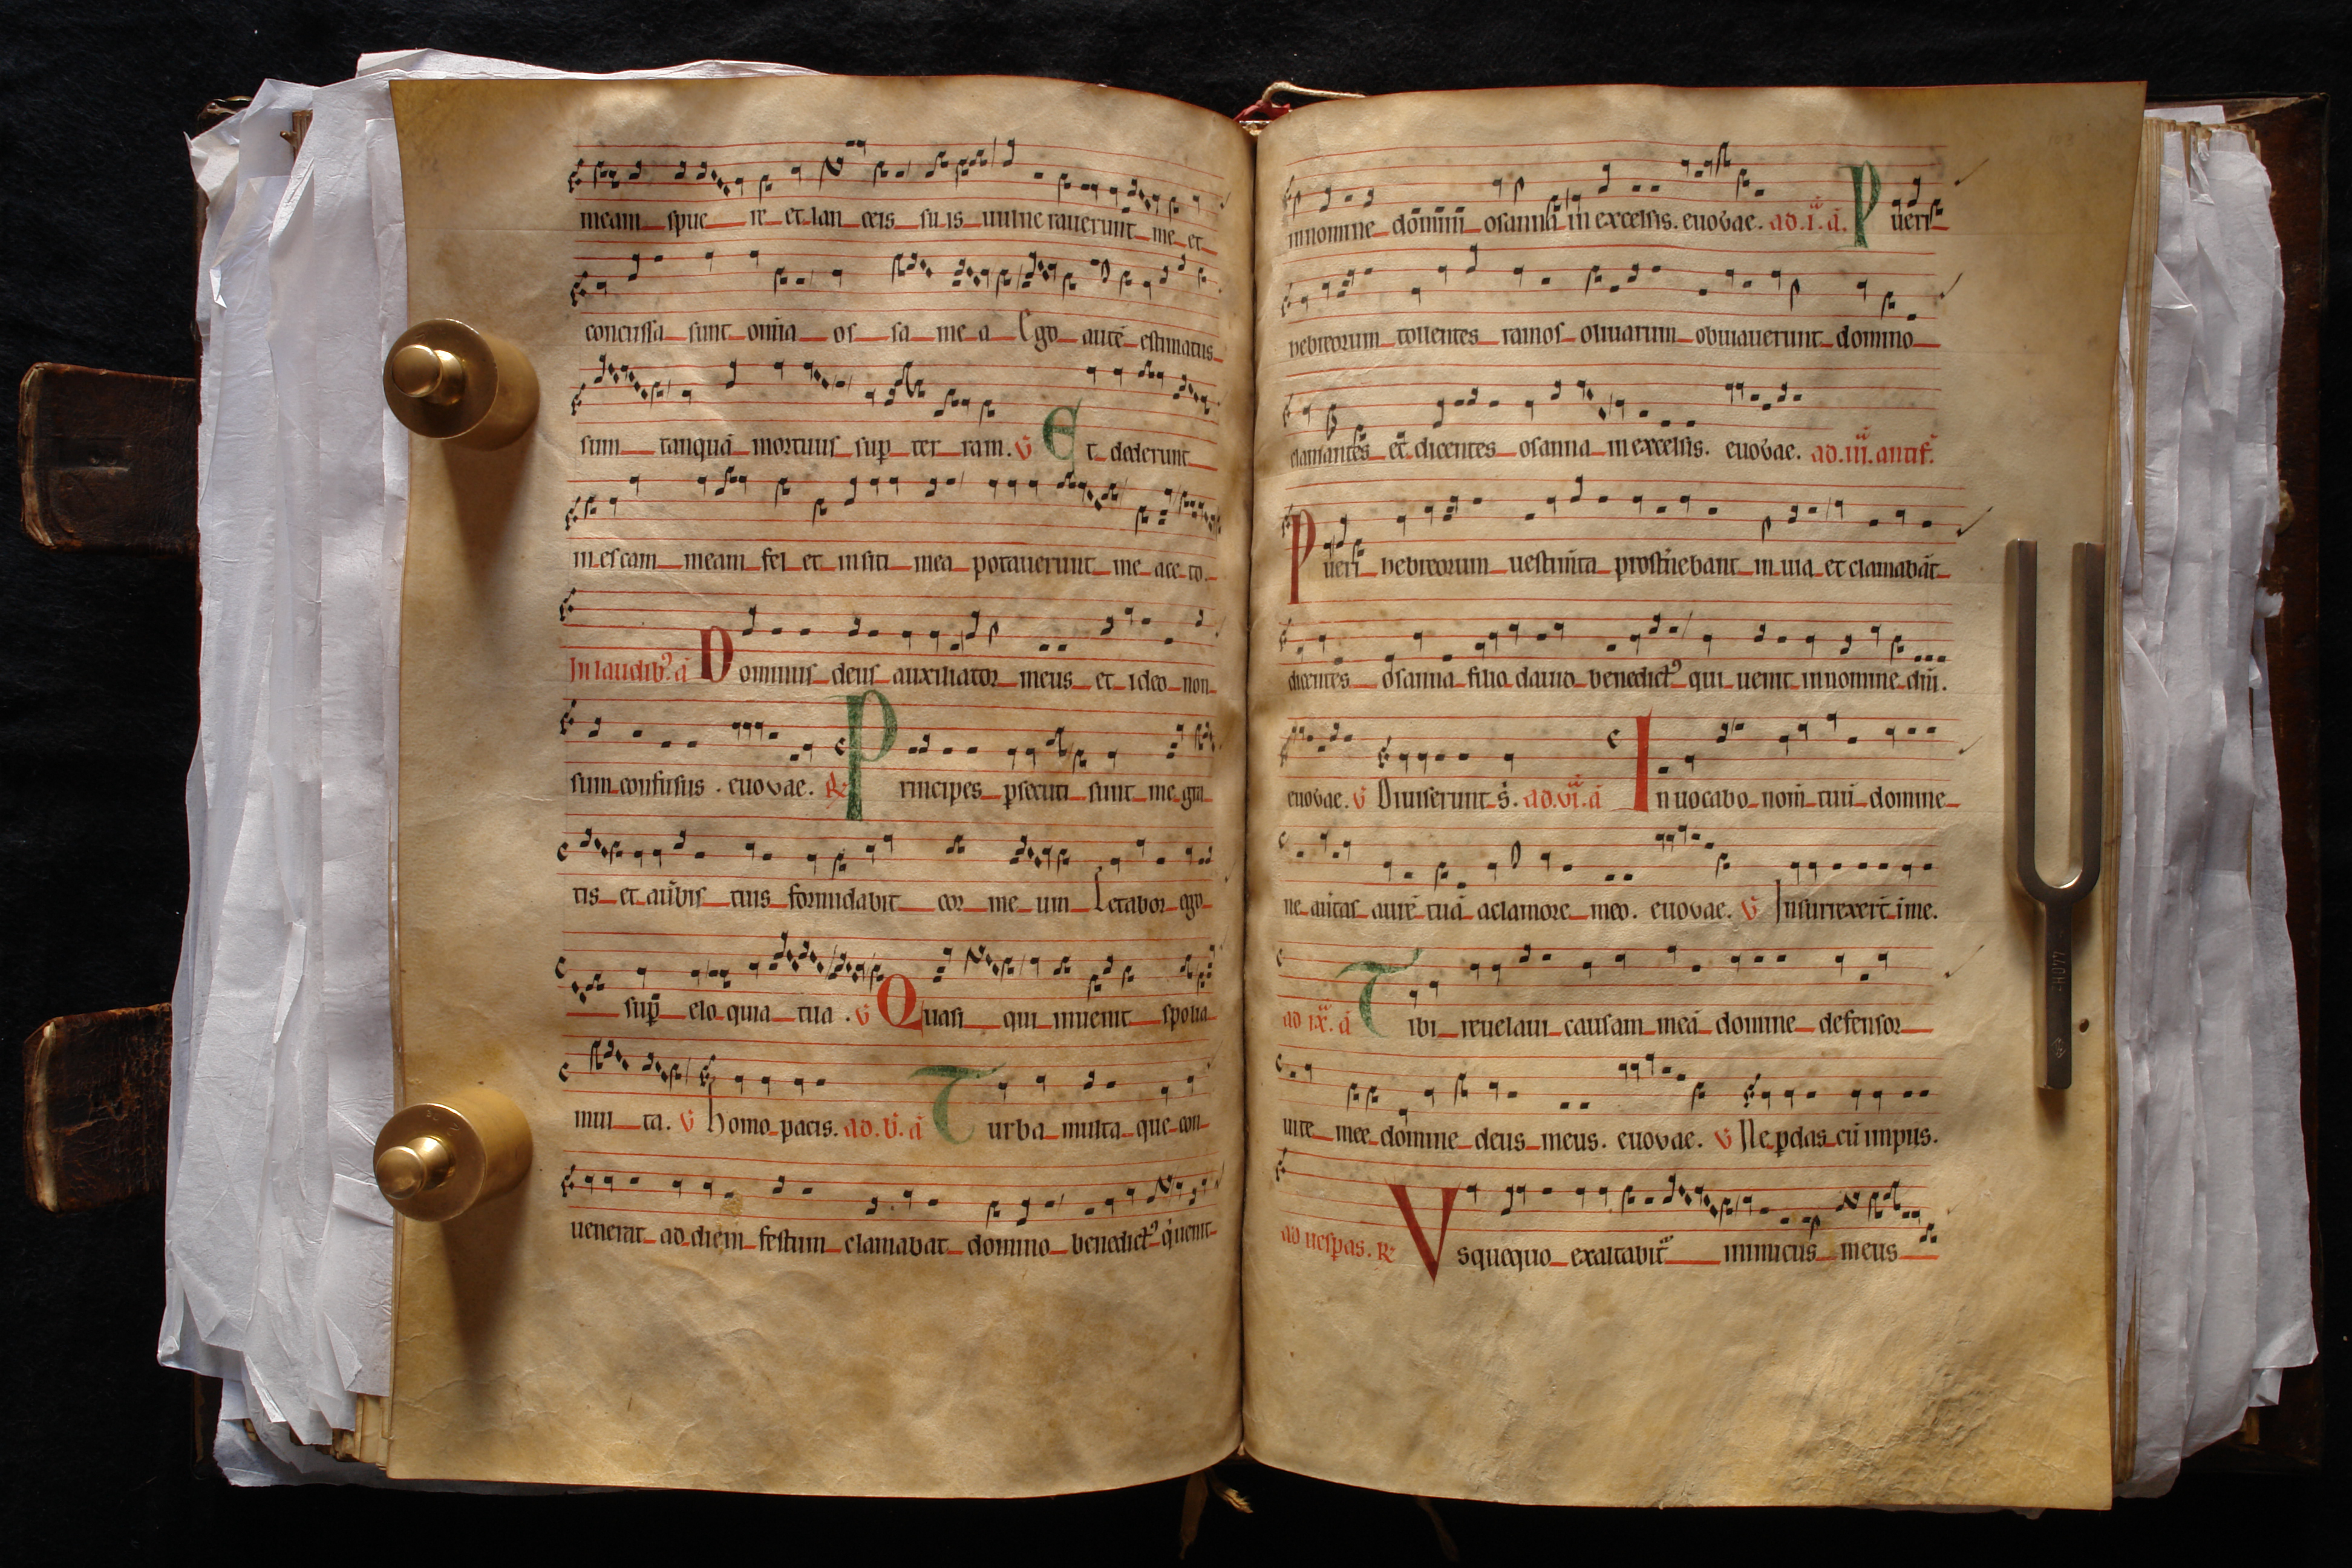 meam spue re et lan ceis su is uulne rauerunt me et
concussa sunt om̄ia os sa me a Ego autē estimatus
sum tanquā mortuus sup̄ ter ram. V Et dederunt
in escam meam fel et in siti mea potauerunt me ace to.
In laudib᾽. ā Dominus deus auxiliator meus et ideo non
sum confusus . euouae. R Principes p̄secuti sunt me gra
tis et a u̇bis tuis formidabit cor me um Letabor ego
sup̄ elo quia tua . V Quasi qui inuenit spolia
mul ta. V homo pacis. ad. b̄. ā Turba multa que con
uenerat ad diem festum clamabat domino benedict᾽ q̇ uenit
in nomine dōmini osanna in excelsis. euouae. ad. i. ā. Pueri
hebreorum tollentes ramos oliuarum obuiauerunt domino
clamantes et dicentes osanna in excelsis. euouae. ad. iii. antif̄.
Pueri hebreorum uestim̄ta prost̄nebant in uia et clamabāt
dicentes osanna filio dauid benedict᾽ qui uenit in nomine dn̄i.
euouae. V Diuiserunt s̄. ad. vi. ā Inuocabo nom̄ tuū domine
ne au̇tas aurē tuā aclamore meo. euouae. V Insurrexerū̄t ī me.
ad ix. ā Tibi reuelaui causam meā domine defensor
uite mee domine deus meus. euouae. V Ne p̄das cū impiis.
ad uesp̄as. R Vsquequo exaltabit᾽ inimicus meus
440Hz